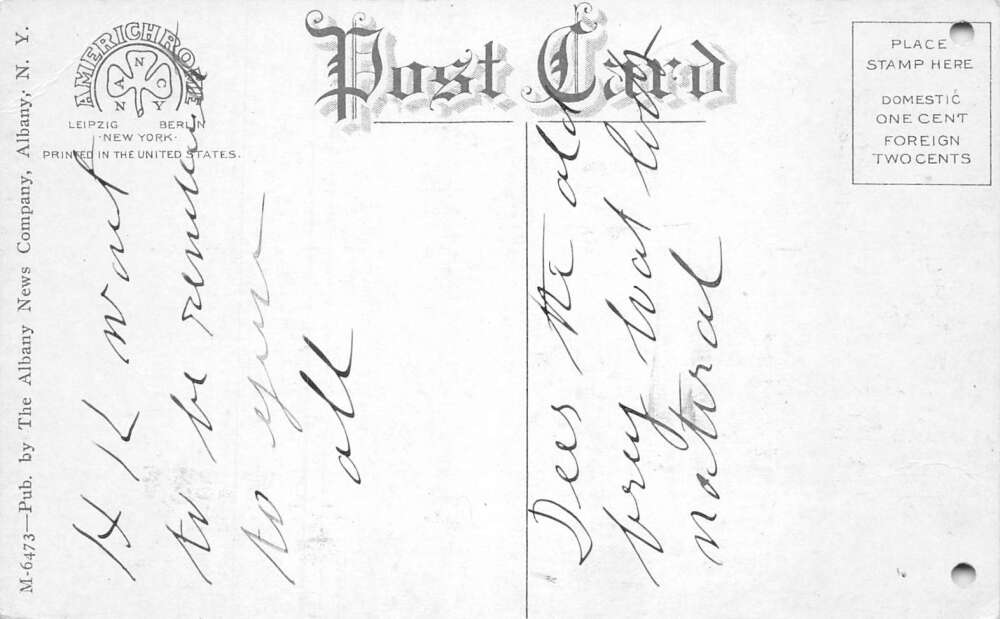 M-6473—Pub. by The Albany News Company, Albany, N. Y.
AMERICHROME
NANCY
LEIPZIG BERLIN
·NEW YORK·
PRINTED IN THE UNITED STATES.
Post Card
PLACE
STAMP HERE
DOMESTIC
ONE CENT
FOREIGN
TWO CENTS
H K want
to be
to
all
Dees the old
look
natural